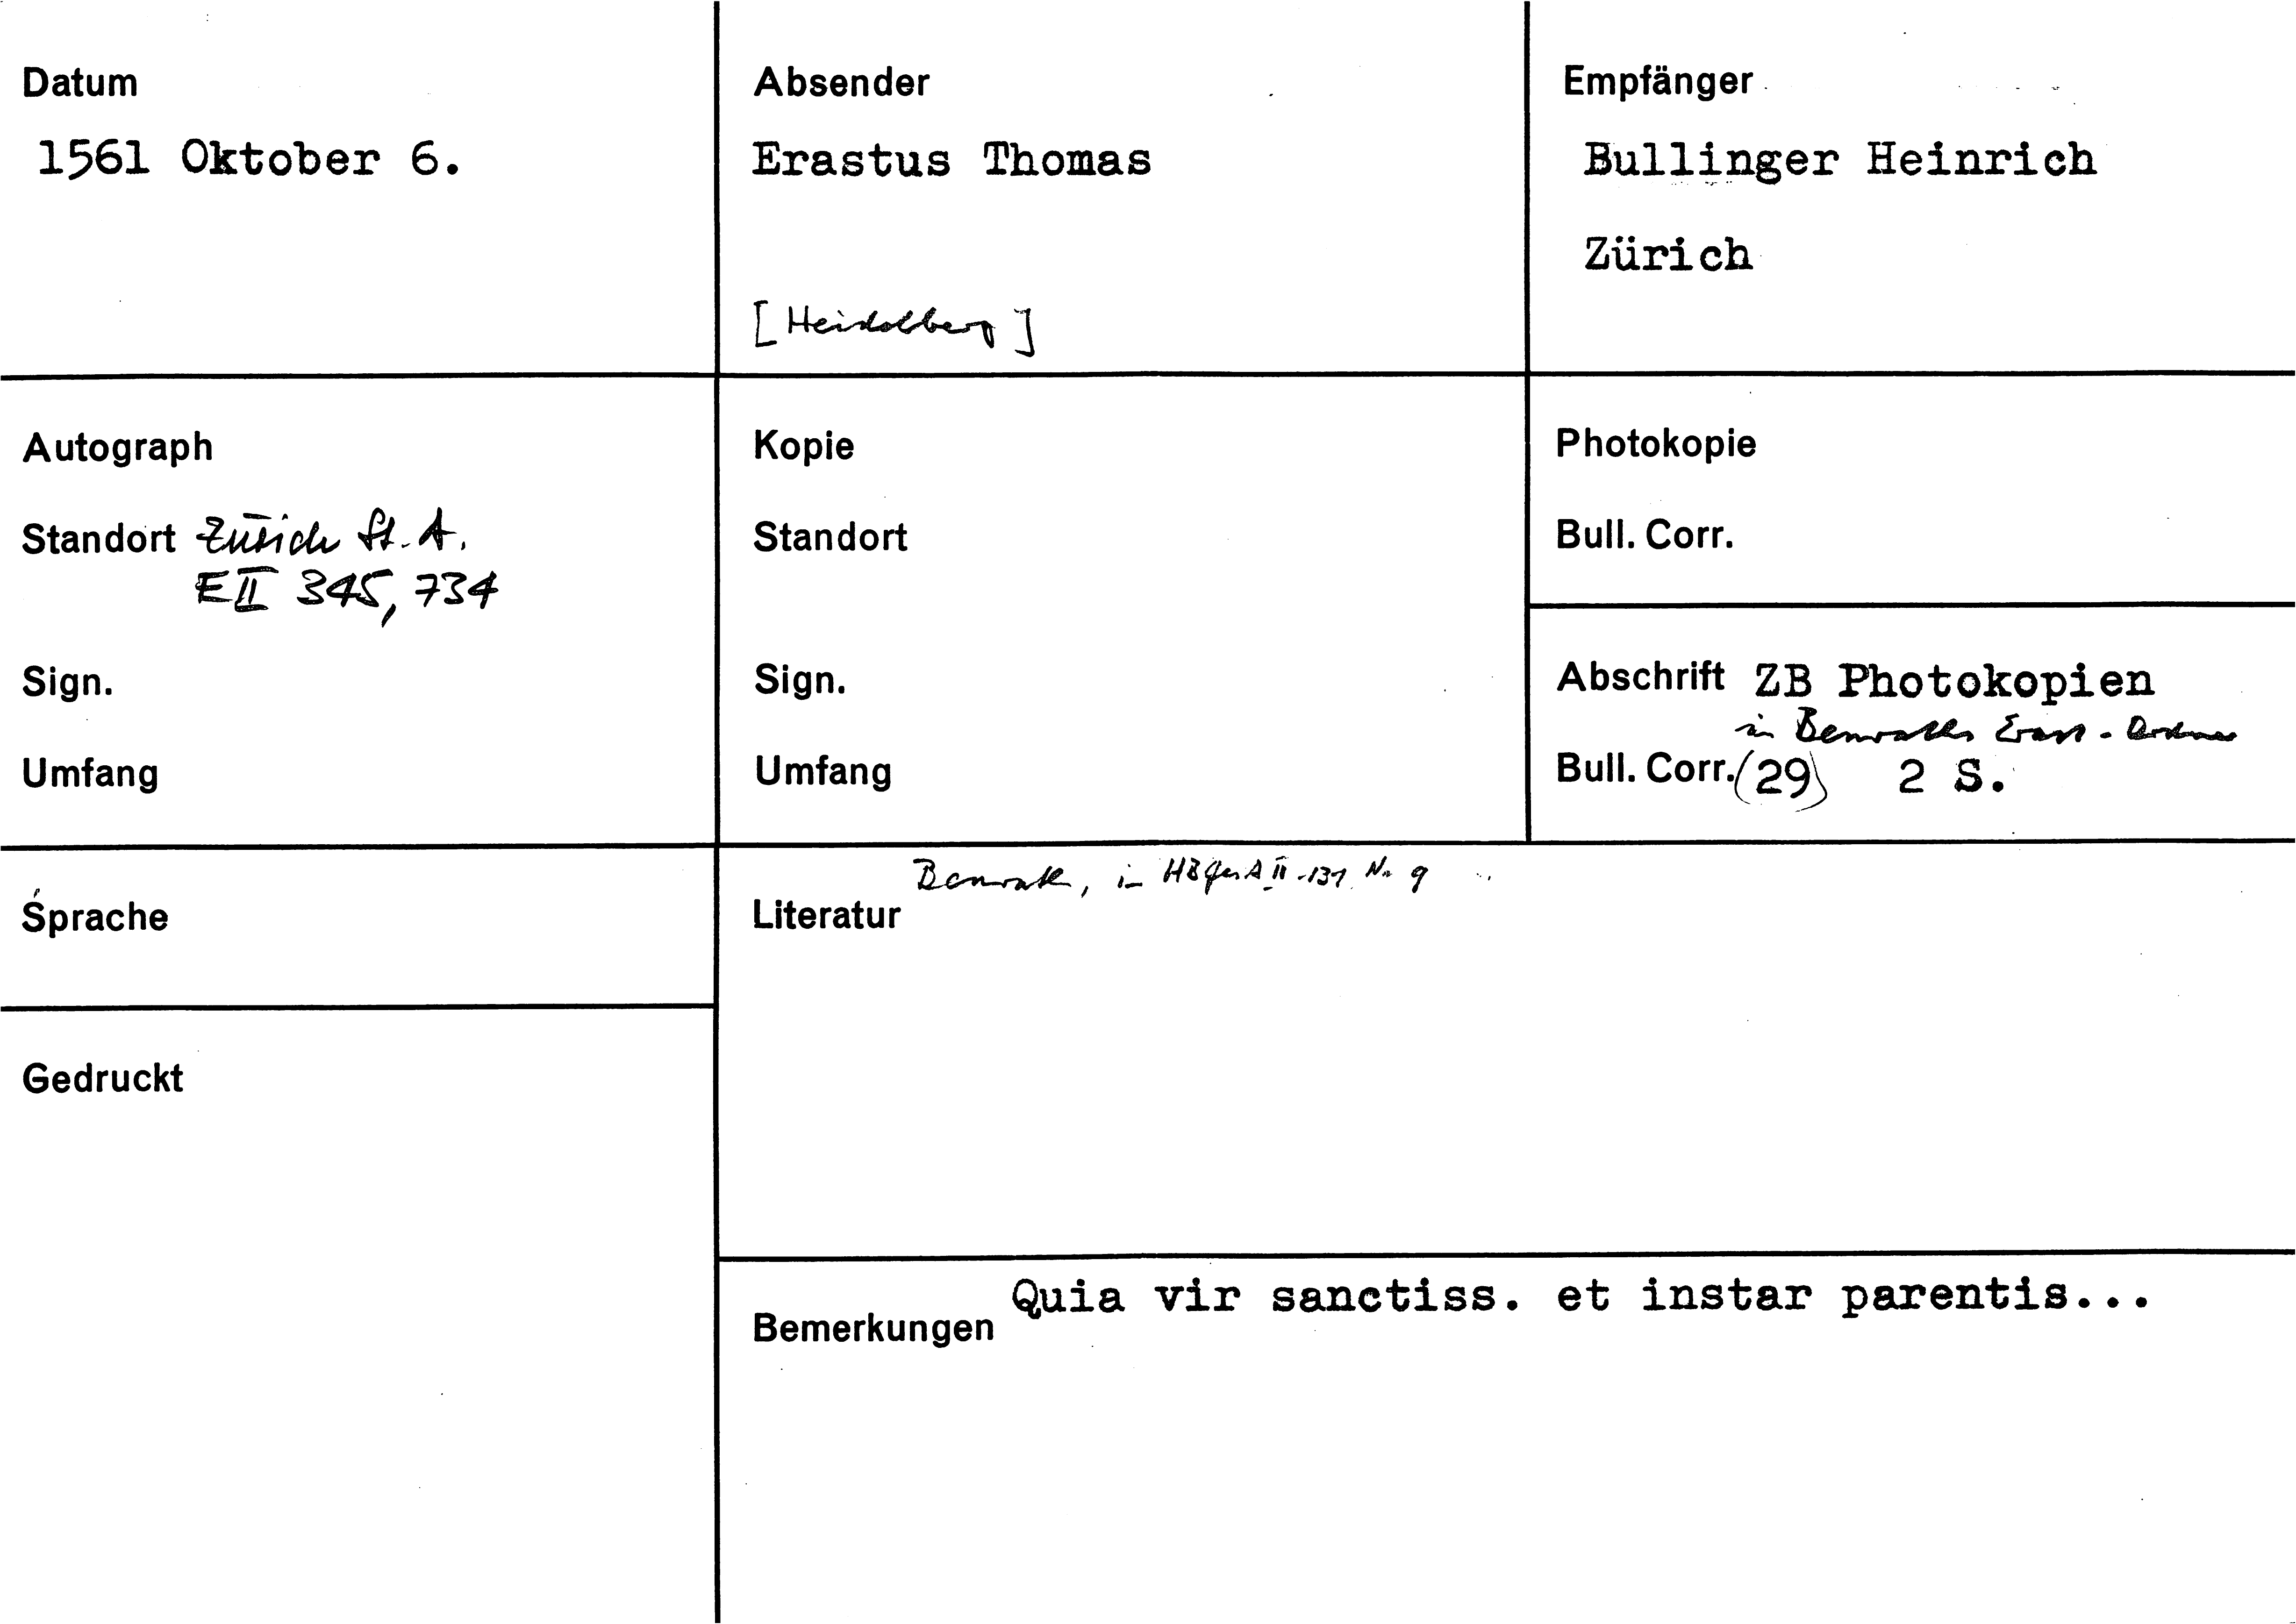 Datum
1561 Oktober 6.
Absender
Erastus Thomas
[Heidelberg]
Empfänger
Bullinger Heinrich
Zürich
Autograph
Standort Zürich St. A.
E II 345, 734
Sign.
Umfang
Kopie
Standort
Sign.
Umfang
Photokopie
Bull. Corr.
Abschrift ZB Photokopien
in Benraths Erast-Ordner
Bull. Corr. (29) 2 S.
Sprache
Gedruckt
Benrath, in II 131 Nr 9
Literatur
Quia vir sanctiss. et instar parentis...
Bemerkungen